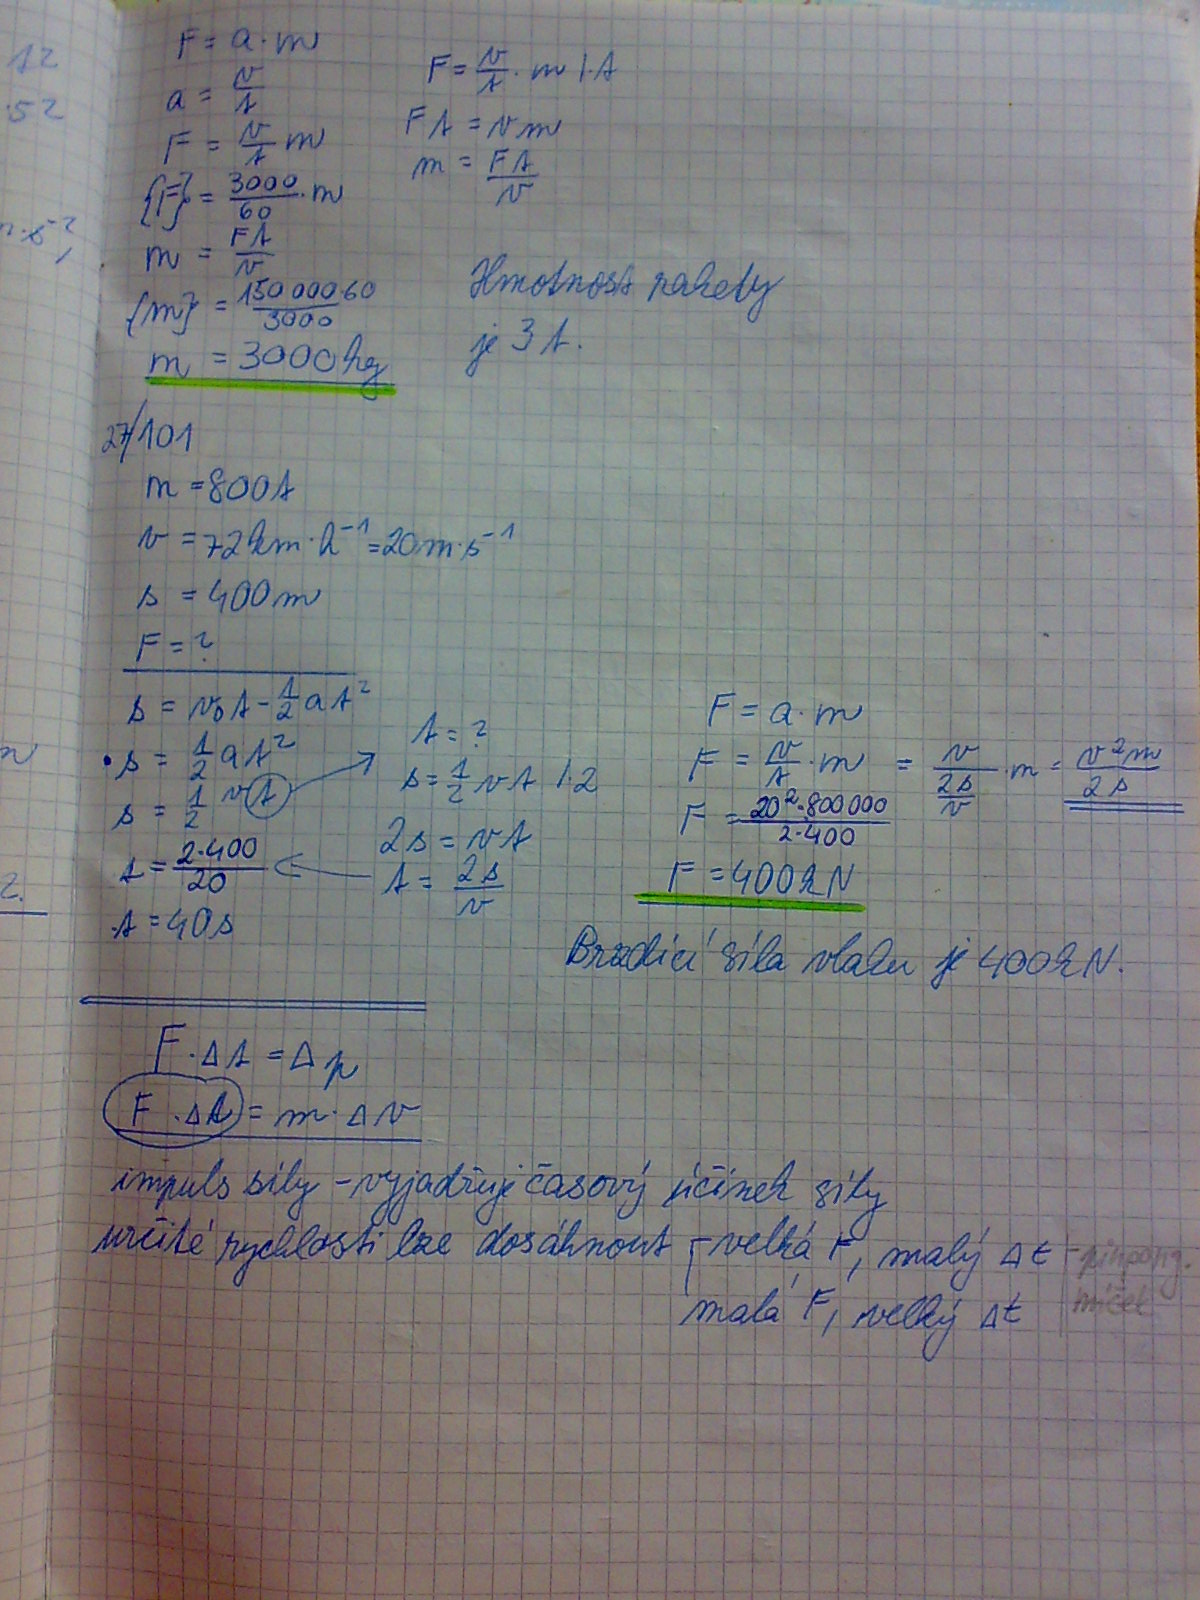 12
52
F = a · m
a = v/t
F = v/t m
{F} = 3000/60 · m
m = Ft/v
{m} = 150 000 60/3000
m = 3000 kg
F = v/t · m | · t
Ft = vm
m = Ft/v
Hmotnost rakety
je 3 t.
27/101
m = 800 t
v = 72 km · h⁻¹ = 20 m · s⁻¹
s = 400 m
F = ?
s = v₀t - 1/2 at²
• s = 1/2 at²
s = 1/2 vt
t = 2·400/20
t = 40 s
t = ?
s = 1/2 vt | · 2
2s = vt
t = 2s/v
F = a · m
F = v/t · m = v/(2s/v) · m = v²m/2s
F = 20²·800 000/2·400
F = 400 kN
Brzdící síla vlaku je 400 kN.
F · Δt = Δp
F · Δt = m · Δv
impuls síly - vyjadřuje časový účinek síly
určité rychlosti lze dosáhnout - velká F, malý Δt -
malá F, velký Δt
míček